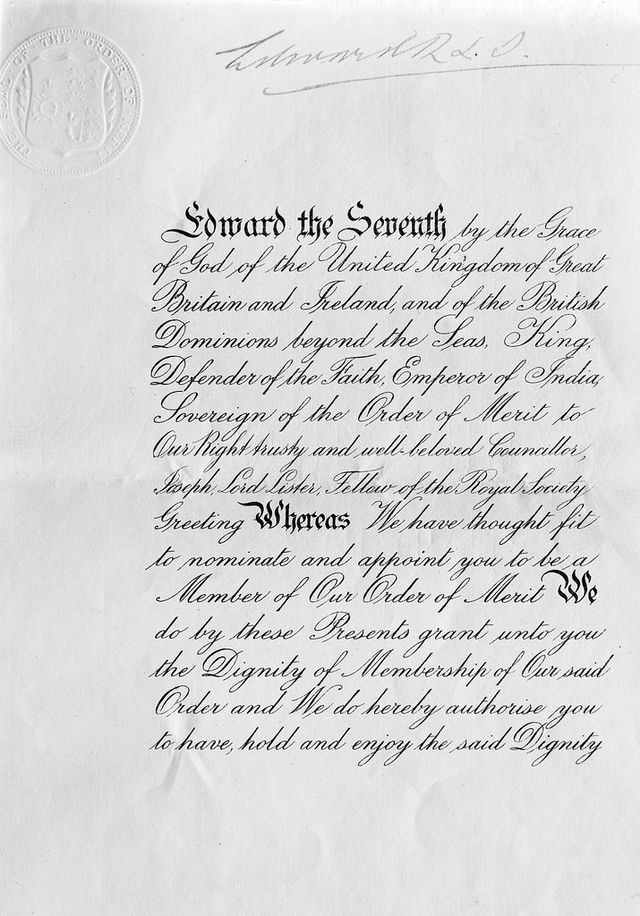 THE SEAL OF THE ORDER OF MERIT
Edward R & I.
Edward the Seventh by the Grace
of God of the United Kingdom of Great
Britain and Ireland, and of the British
Dominions beyond the Seas, King,
Defender of the Faith, Emperor of India,
Sovereign of the Order of Merit to
Our Right trusty and well-beloved Councillor,
Joseph, Lord Lister, Fellow of the Royal Society
Greeting Whereas We have thought fit
to nominate and appoint you to be a
Member of Our Order of Merit We
do by these Presents grant unto you
the Dignity of Membership of Our said
Order and We do hereby authorise you
to have, hold and enjoy the said Dignity